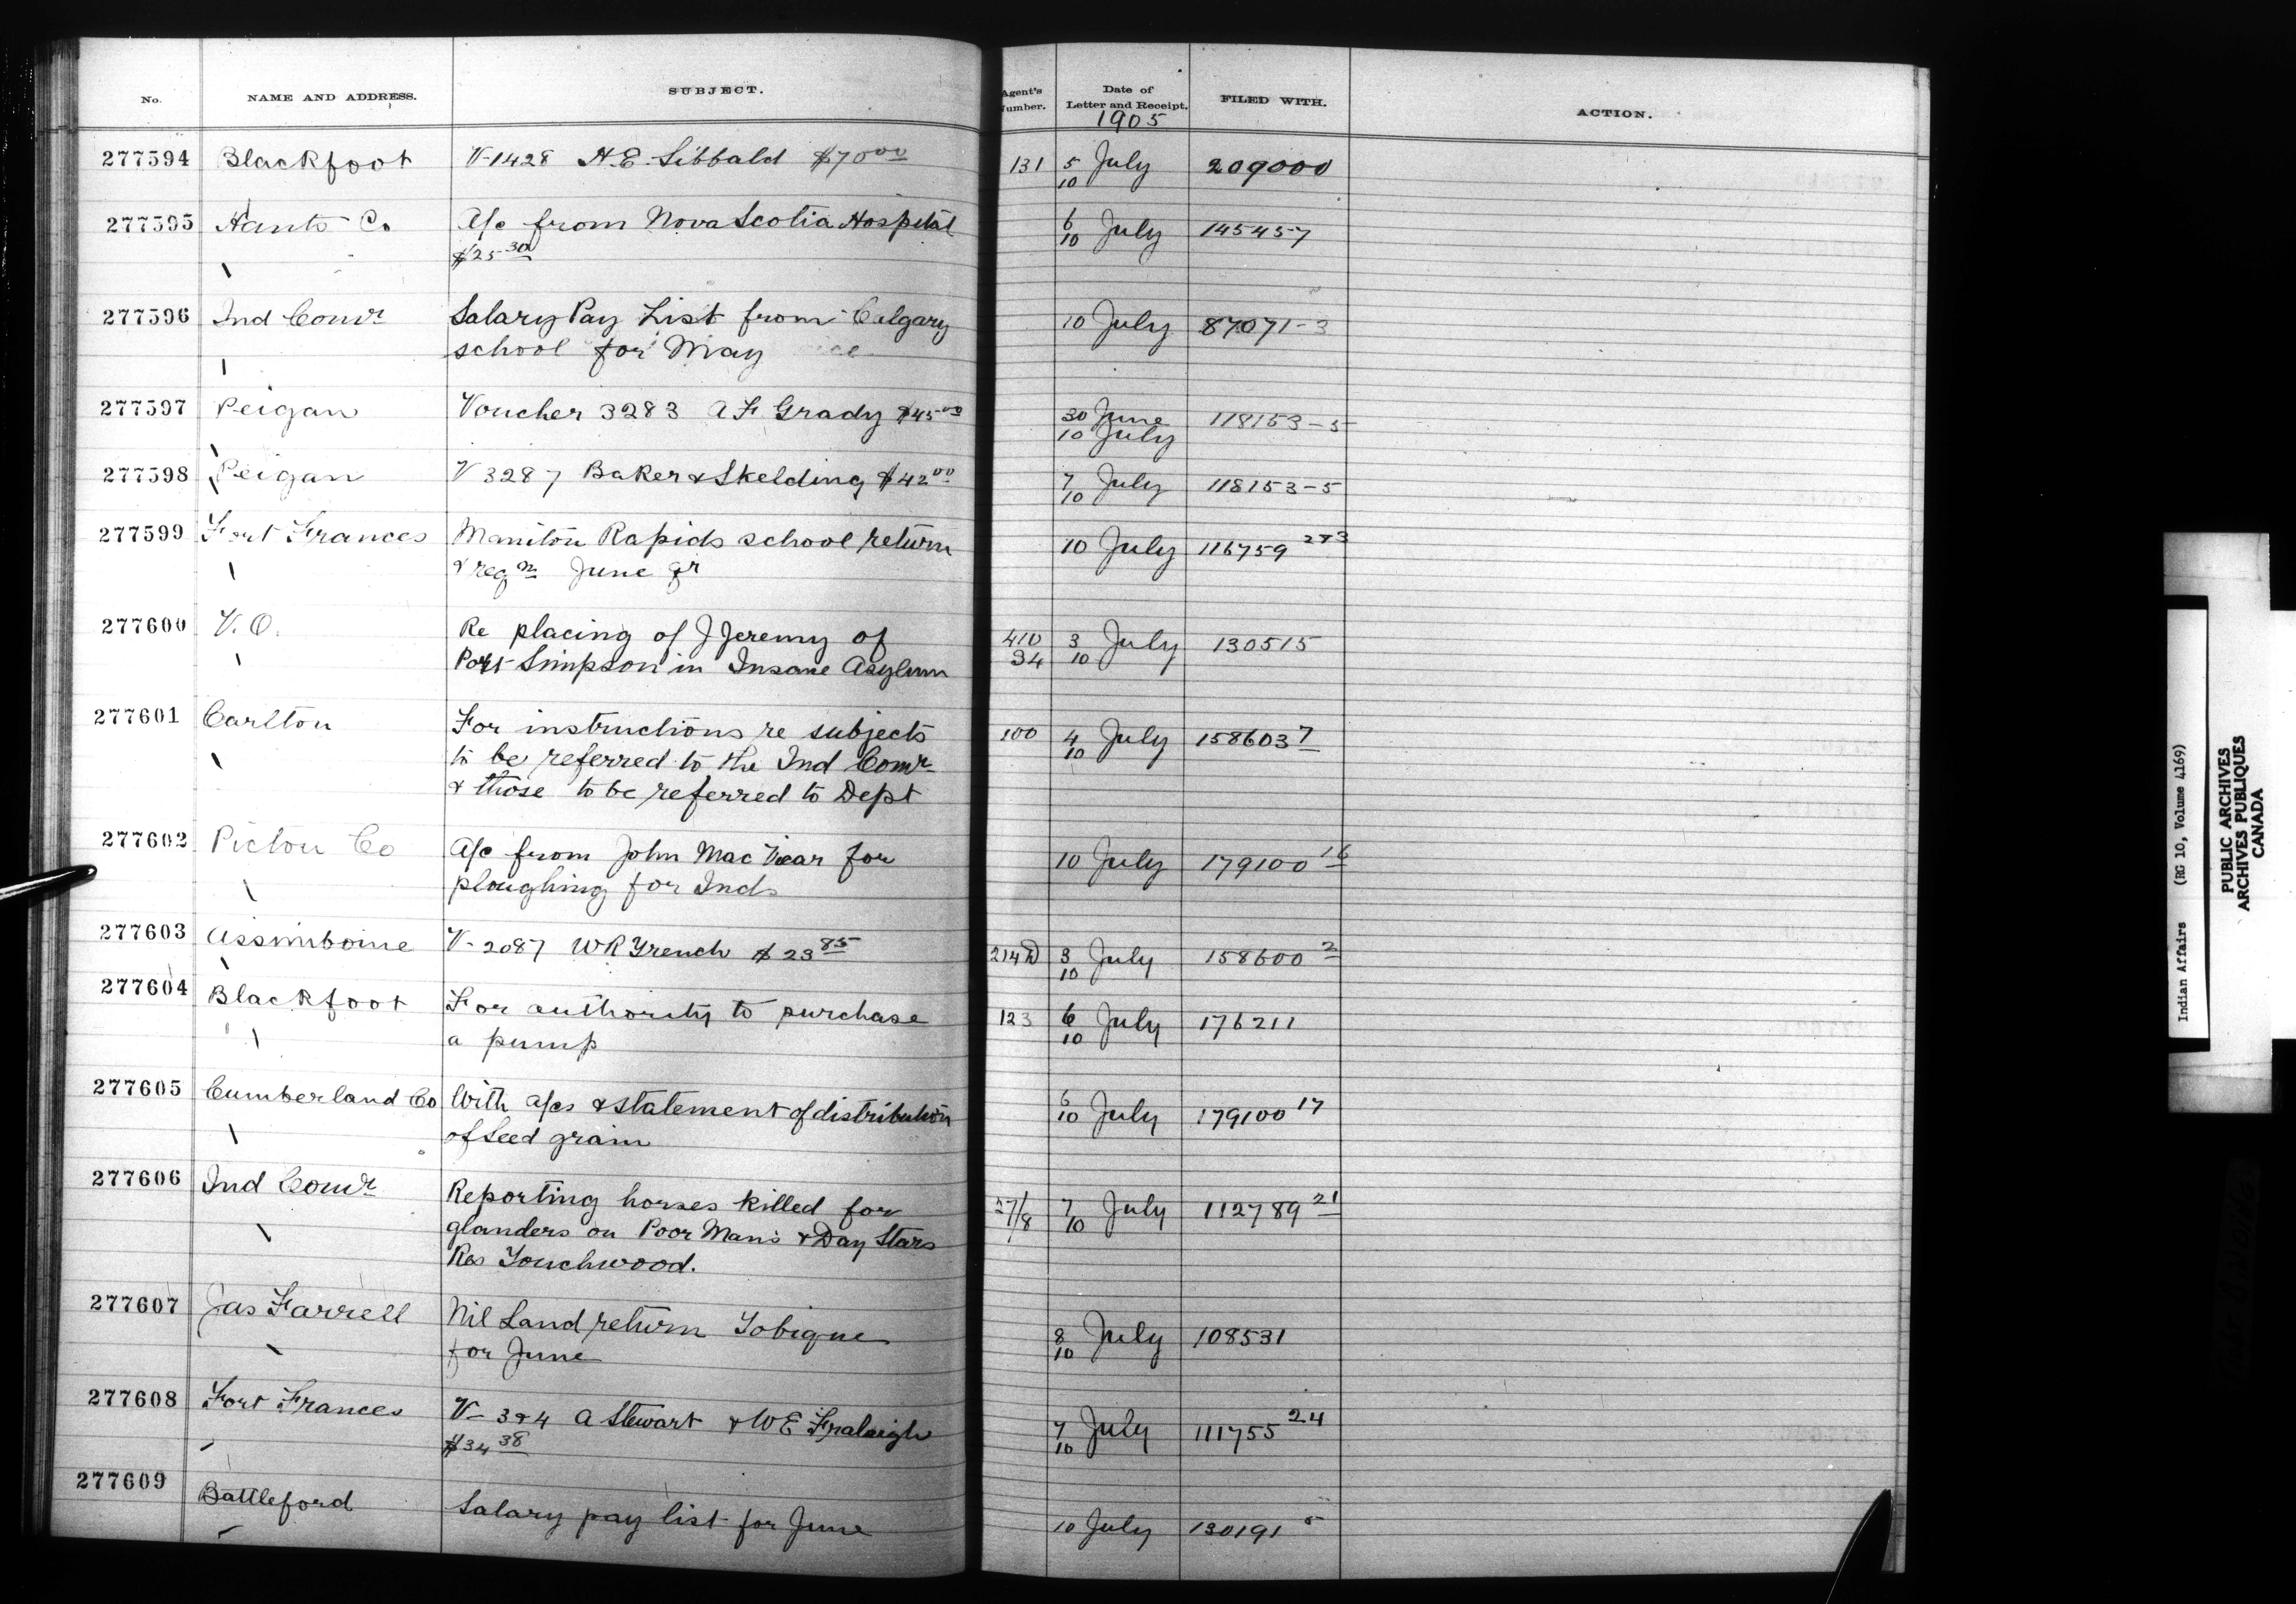 No. NAME AND ADDRESS. SUBJECT. Agent's Number. Date of Letter and Receipt. FILED WITH. ACTION.
1905
277594 Blackfoot V-1428 H.E. Sibbald $70 00 131 5 July 209000
10
277595 Hants Co A/c from Nova Scotia Hospital 6 July 145457
$25 30 10
277596 Ind Comr Salary Pay List from Calgary 10 July 87071-3
school for May
277597 Peigan Voucher 3283 A F Grady $45 00 30 June 118153-5
10 July
277598 Peigan V 3287 Baker & Skelding $42 00 7 July 118153-5
10
277599 Fort Frances Manitou Rapids school return 10 July 116759 2&3
& reqn June qr
277600 V.O. Re placing of J Jeremy of 410 3 July 130515
Port Simpson in Insane Asylum 34 10
277601 Carlton For instructions re subjects 100 4 July 158603 7
to be referred to the Ind Comr 10
& those to be referred to Dept
277602 Pictou Co A/c from John MacVicar for 10 July 179100 16
ploughing for Inds
277603 Assiniboine V-2087 WR French $23 85 214 3 July 158600 2
10
277604 Blackfoot For authority to purchase 123 6 July 176211
a pump 10
277605 Cumberland Co With a/cs & statement of distribution 6 July 179100 17
of seed grain 10
277606 Ind Comr Reporting horses killed for 7 July 112789 21
glanders on Poor Man's & Day Stars 10
Res Touchwood.
277607 Jas Farrell Nil Land return Tobique 8 July 108531
for June 10
277608 Fort Frances V-3&4 A Stewart & WE Fraleigh 7 July 111755 24
$34 38 10
277609 Battleford Salary pay list for June 10 July 130191 5
Indian Affairs (RG 10, Volume 4169)
PUBLIC ARCHIVES
ARCHIVES PUBLIQUES
CANADA